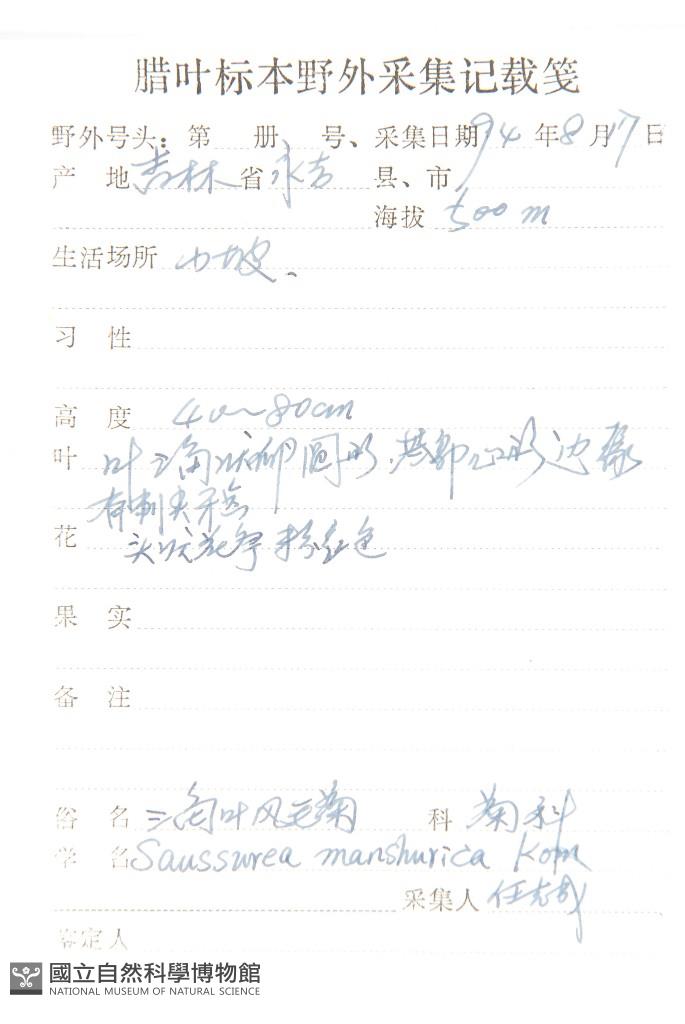 腊叶标本野外采集记载笺
野外号头：第 册 号、采集日期94年8月17日
产 地吉林省永吉 县、市
海拔 500m
生活场所 山坡、
习 性
高 度 40~80cm
叶 叶三角状卵圆形,基部心形边缘
有刺尖牙齿
花 头状花序粉红色
果 实
备 注
俗 名 三角叶风毛菊 科 菊科
学 名Saussurea manshurica Kom
采集人 任
鉴定人
國立自然科學博物館
NATIONAL MUSEUM OF NATURAL SCIENCE